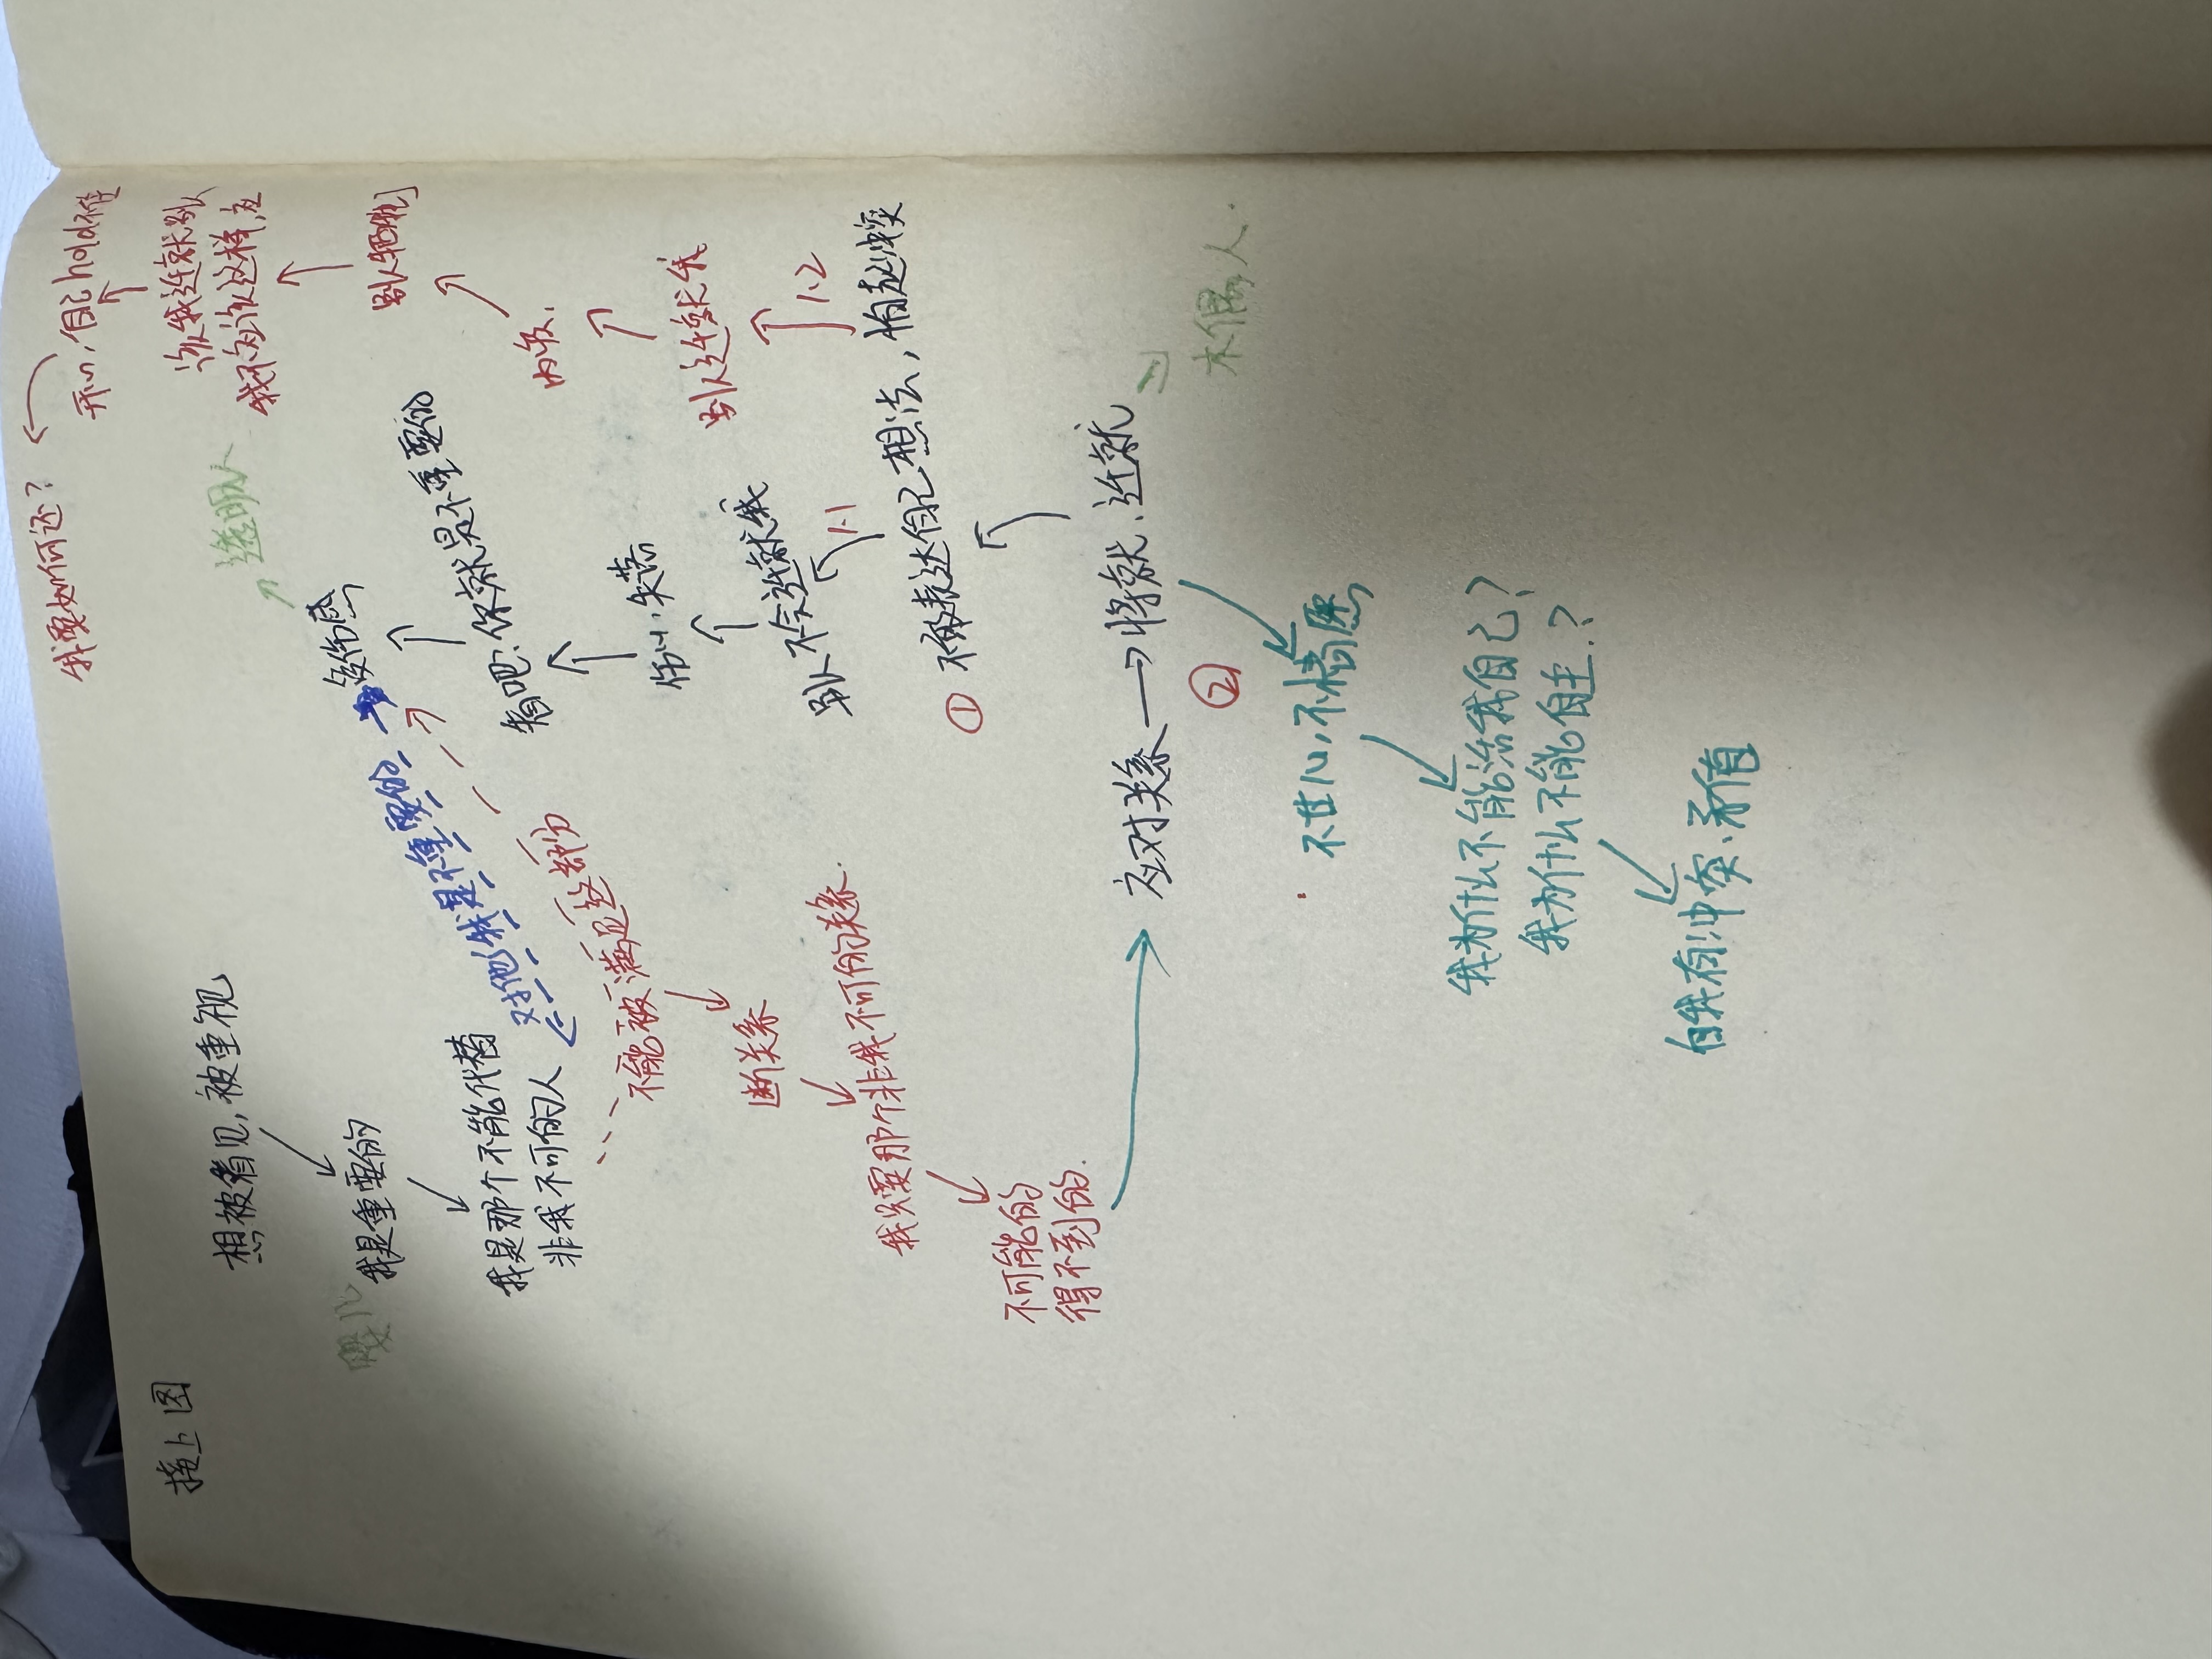 接上图
想被看见,被重视
我是重要的
婴儿
我是那个不能代替
非我不可的人
对他我是不重要的
不能被满足这部分
断关系
我只要那个非我不可的关系.
不可能的
得不到的.
应对关系→将就、迁就
木偶人
①不能表达自己想法,怕起冲突
1.1
别人不会迁就我
伤心,失落
看吧:你就是不重要的
受伤感
透明人
1.2
别人迁就我
内疚.
别人牺牲
我不应该这样,
迁就别人
开心,自己hold不住
我要如何还?
②
不甘心,不情愿
我为什么不能活我自己?
我为什么不能自主?
自我有冲突、矛盾